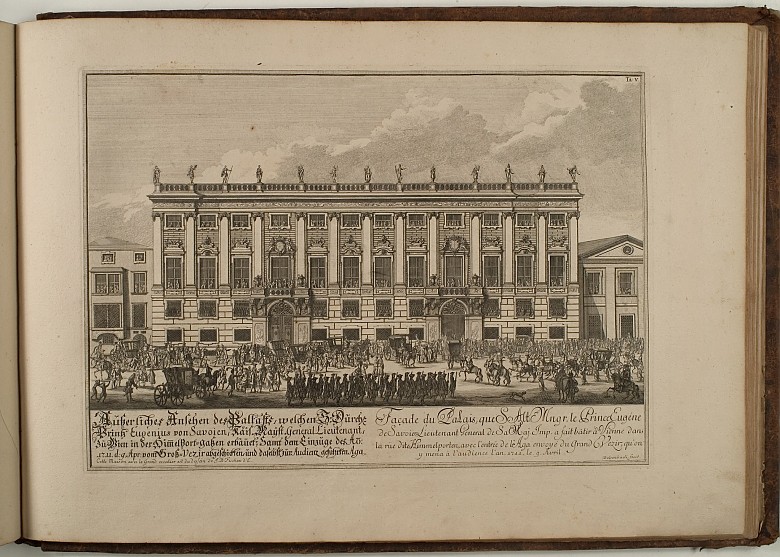 Ta. V.
Äußerliches Ansehen des Pallasts, welchen S. Dürchl.
Printz Eugenius von Savoien, Kaÿs. Maÿst. General Lieutenant,
Zu Wien in der Himelport-gaßen erbauet; Samt dem Einzüge des
d. 9. Apr. vom Groß-Vezir abgeschickten und daselbst zür Audienz geführten Aga.
Façade du Palais, que S. Alt. Mngr. le Prince Eugene
de Savoie Lieutenant General de Sa Maj. Imp. a fait bâtir à Vienne dans
la rue dite Himmelporten, avec l'entrée de l'Aga envoyé du Grand Vezir, qu'on
y mena à l'audience l'an. 1711. le 9. Avril.